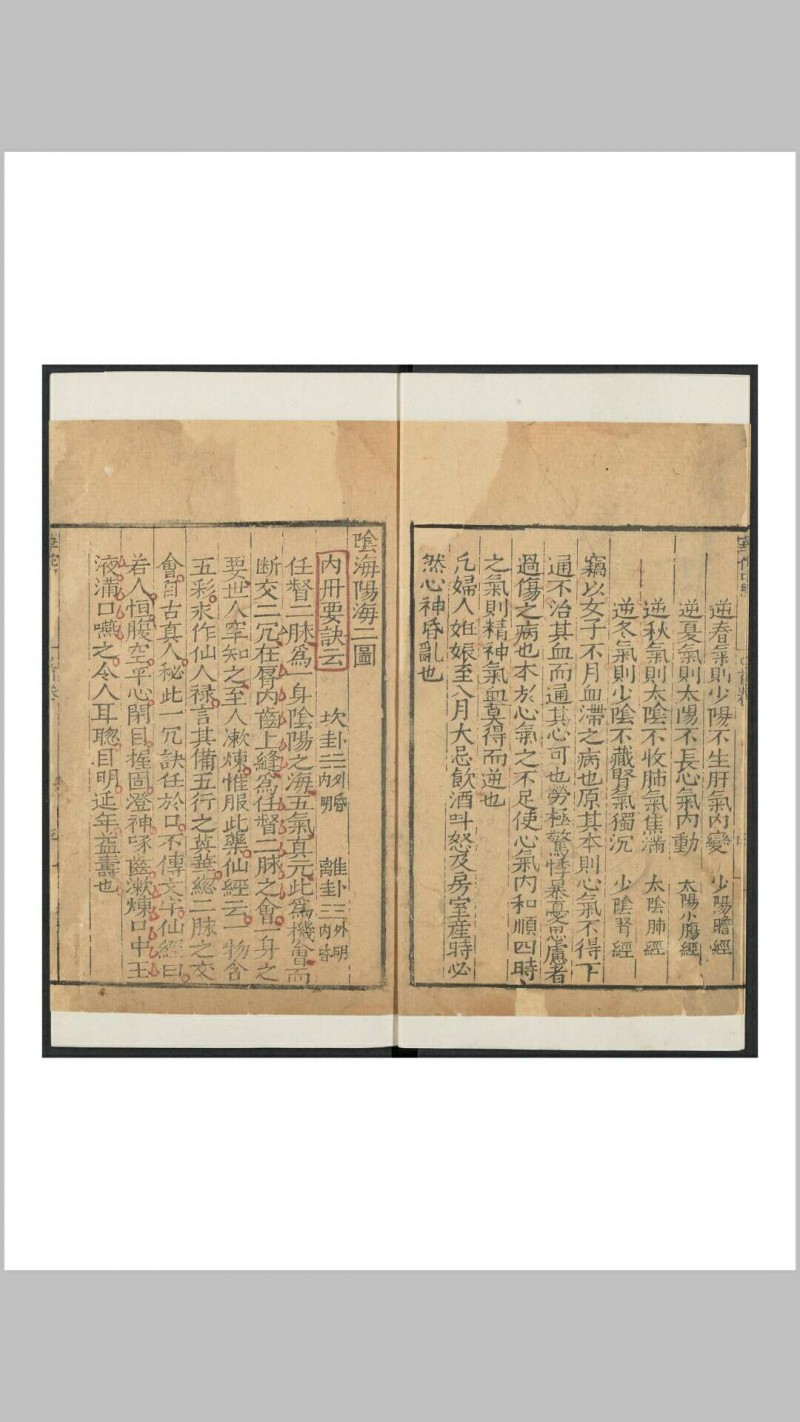 逆春氣則少陽不生肝氣內變　少陽膽經
逆夏氣則太陽不長心氣內動　太陽小膓經
逆秋氣則太陰不收肺氣焦滿　太陰肺經
逆冬氣則少陰不藏腎氣獨沉　少陰腎經
竊以女子不月血滯之病也原其本則心氣不得下
通不治其血而通其心可也勞極驚悸暴憂思慮者
過傷之病也本於心氣之不足使心氣內和順四時
之氣則精神氣血莫得而逆也
凢婦人姙娠至八月大忌飲酒叫怒及房室産時必
然心神昏亂也
陰海陽海二圖
內丹要訣云　坎卦☵外昏內明　離卦☲外明內昏
任督二脉為一身陰陽之海五氣真元此為機會而
断交二穴在唇內齒上縫為任督二脉之會一身之
要世人罕知之至人漱煉惟服此藥仙經云一物含
五彩求作仙人禄言其備五行之英華總二脉之交
會自古真人秘此一穴訣任於口不傳文字仙經曰
若人恒腹空平心閉目握固澄神啄齒漱煉口中玉
液滿口嚥之令人耳聰目明延年益壽也